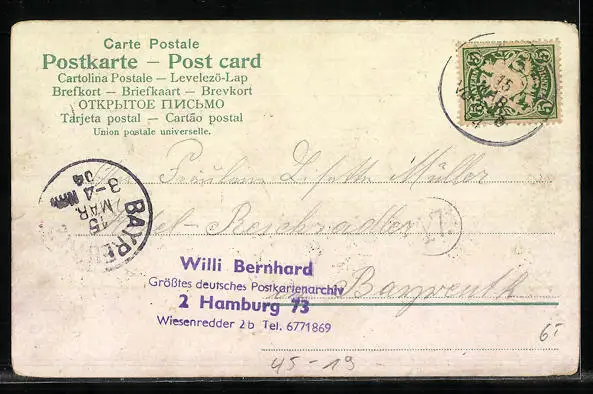 Carte Postale
Postkarte – Post card
Cartolina Postale – Levelező-Lap
Brefkort – Briefkaart – Brevkort
ОТКРЫТОЕ ПИСЬМО
Tarjeta postal – Cartão postal
Union postale universelle.
Fräulein Müller
BAYREU
15 MAR
3-4 NM
04
17.
Bayreuth
Willi Bernhard
Größtes deutsches Postkartenarchiv
2 Hamburg 73
Wiesenredder 2b Tel. 6771869
45-19